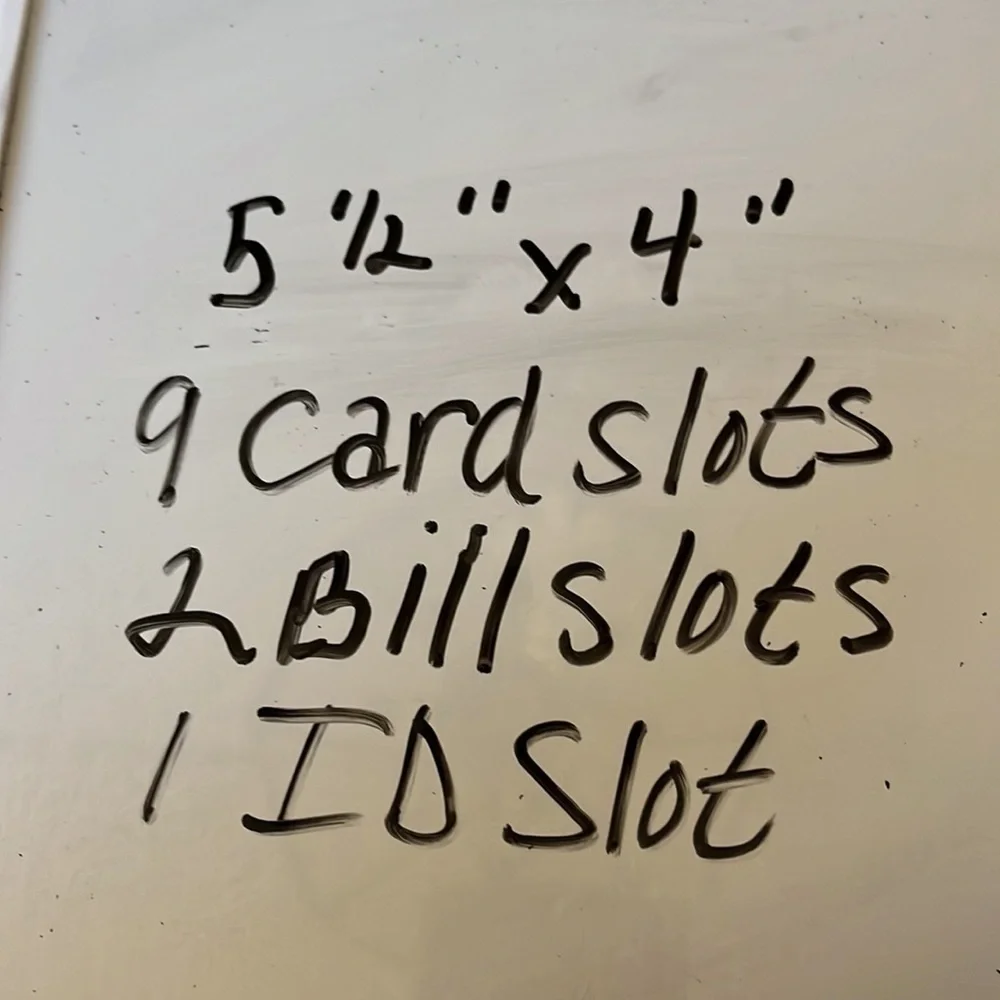 5 1/2" x 4"
9 Card slots
2 Bill slots
1 ID Slot